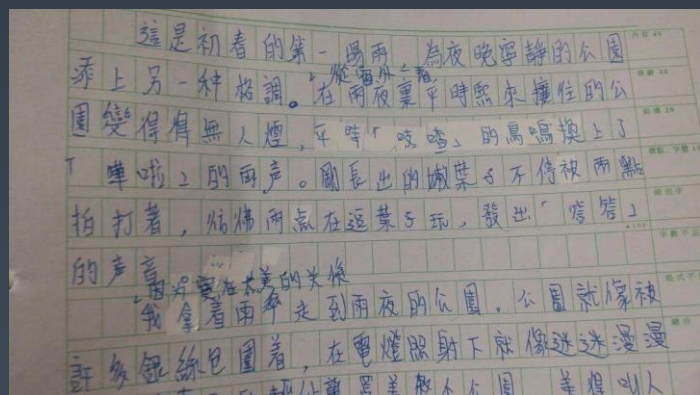 這是初春的第一場雨，為夜晚寧靜的公園
添上另一种格調。從窗外看，在雨夜裏平時熙來攘往的公
園變得得無人煙，平時「吱喳」的鳥鳴換上了
「嘩啦」的雨声。剛長出的嫩葉子不停被雨點
拍打著，彷彿雨点在逗葉子玩，發出「答答」
的声音
因为實在太美的关係
我拿着雨傘走到雨夜的公園。公園就像被
許多銀絲包圍着，在電燈照射下就像迷迷漫漫
公園
美得叫人